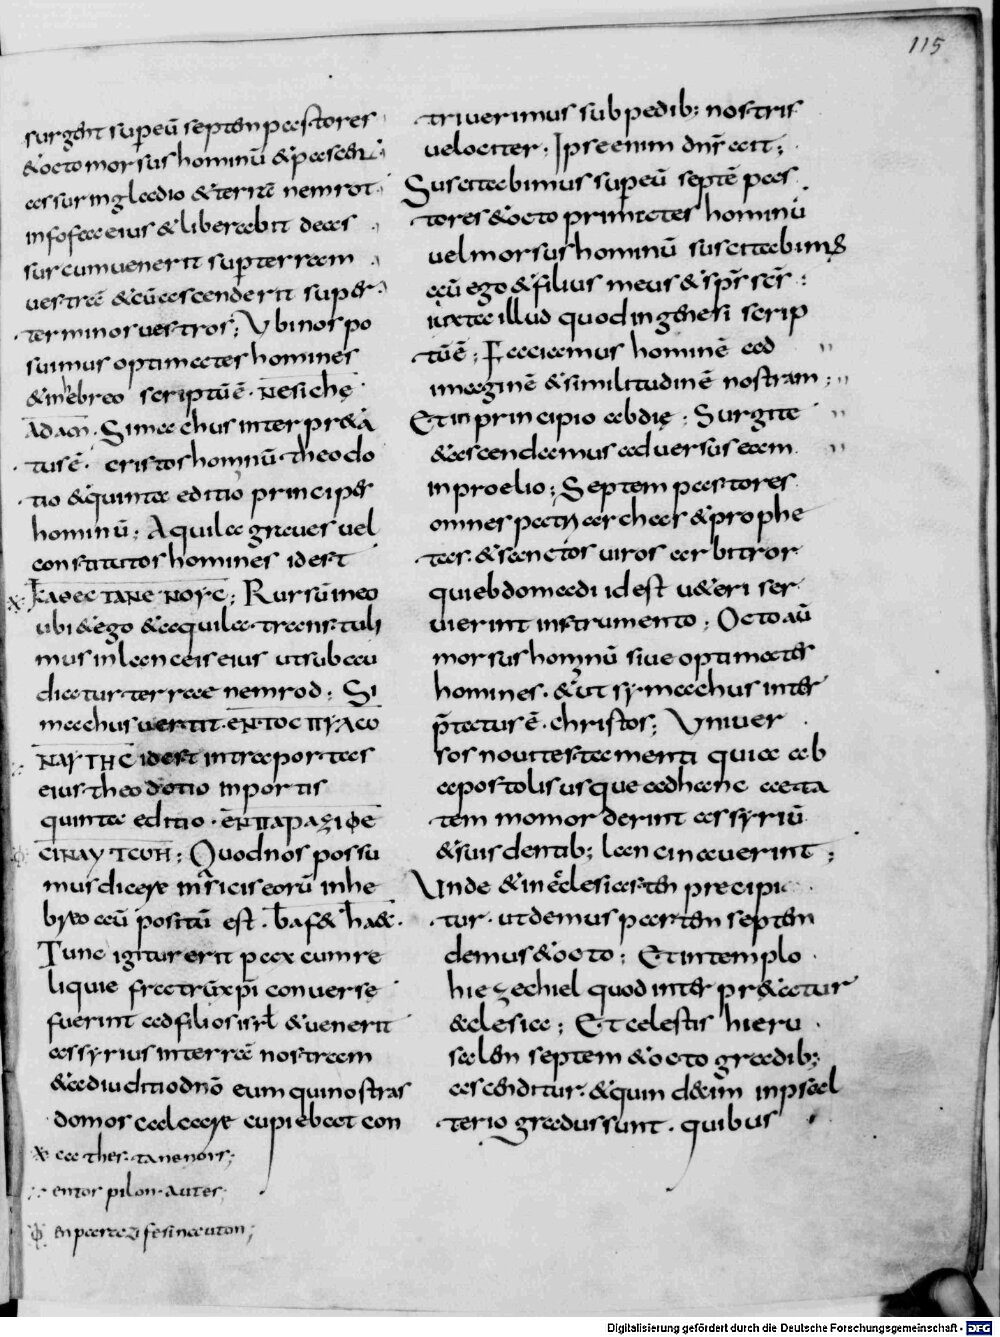 115
surgent super eū septem pastores
& octo morsus hominū & pascent
assur in gladio & terrā nemrot
in fossa eius & liberabit de as
sur cum venerit super terram
vestrā & cū ascenderit super
terminos vestros; Ubi nos po
suimus optimates homines
& in hebreo scriptū ē. nesiche
adam. Simachus interpr&a
tus ē. cristos hominū. theodo
tio & quinta editio principes
hominū; Aquila graves vel
constitutos homines id est
ΚΑΘΕϹΤΑΝΕΝΟΥϹ; Rursū in eo
ubi & ego & aquila transtuli
mus in lanceis eius ut subau
diatur terrae nemrod; Si
machus vertit. ΕΝΤΟϹ ΠΥΛΩ
ΝΑΥΤΗϹ id est intra portas
eius. theodotio in portis
quinta editio. ΕΝ ΠΑΡΑΞΙΦΕ
ϹΙΝ ΑΥΤΩΝ; Quod nos possu
mus dicere in siciis eorū in he
breo eū positū est. bafe hae.
Tunc igitur erit pax cum re
liquie fratrū xpi converse
fuerint ad filios isrl & venerit
assyrius in terrā nostram
& adiuditio dnō eum qui nostras
domos calcare cupiebat con
x cathes. tanenois;
entos pilon. autes;
φ en paraxifesin auton;
triverimus sub pedib; nostris
velociter; Ipse enim dns ait;
Suscitabimus super eū septē pas
tores & octo primates hominū
vel morsus hominū suscitabimus
eū ego & filius meus & sps scs;
iuxta illud quod in genesi scrip
tū ē; Faciamus hominē ad
imaginē & similitudinē nostram;
Et in principio abdie; Surgite
& ascendamus adversus eam
in proelio; Septem pastores
omnes patriarchas & prophe
tas & sanctos viros arbitror
qui ebdomadi id est v&eri ser
vierint instrumento; Octo aū
morsus hominū sive optimates
homines. & ut symachus inter
pratatus ē. christos; Univer
sos novi testamenti qui a b
apostolis usque ad hanc aeta
tem momorderint assyriū
& suis dentib; lancinaverint;
Unde & in ecclesiasten precipi
tur. ut demus partem septem
demus & octo; Et in templo
hiezechiel quod interpr&atur
ecclesia; Et celestis hieru
salem septem & octo gradib;
ascenditur. & quindecim in psal
terio gradus sunt. quibus
Digitalisierung gefördert durch die Deutsche Forschungsgemeinschaft - DFG